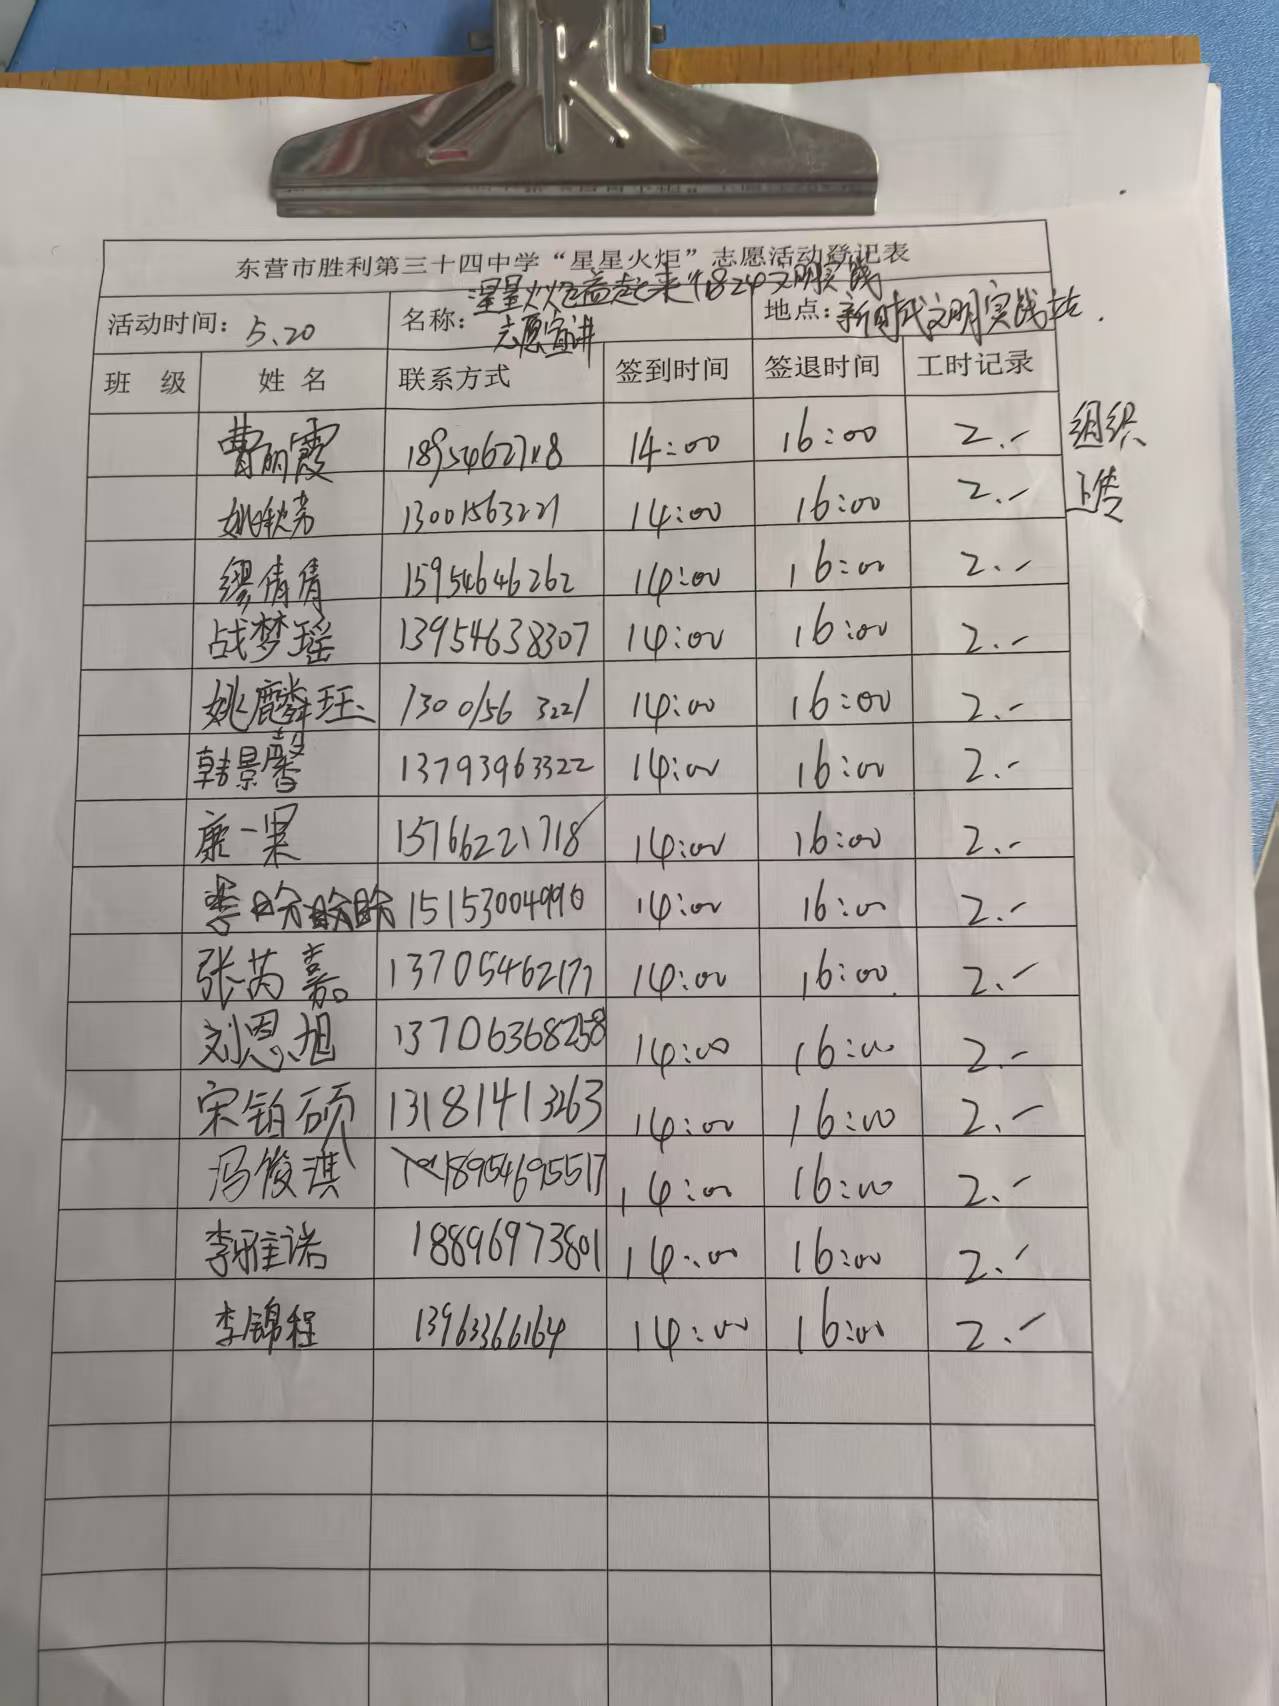 东营市胜利第三十四中学“星星火炬”志愿活动登记表
活动时间: 5.20 名称: 星星火炬益起来"1824文明实践 志愿宣讲 地点: 新时代文明实践站.
班 级 姓 名 联系方式 签到时间 签退时间 工时记录
曹丽霞 189546271 8 14:00 16:00 2.- 组织
姚秋芳 13001563221 14:00 16:00 2.- 上传
缪倩倩 15954646262 14:00 16:00 2.-
战梦瑶 13954638307 14:00 16:00 2.-
姚麟珏 13001563221 14:00 16:00 2.-
韩景馨 13793963322 14:00 16:00 2.-
康一果 15166221718 14:00 16:00 2.-
李 盼盼 15153004990 14:00 16:00 2.-
张芮嘉 13705462177 14:00 16:00 2.-
刘恩旭 13706368258 14:00 16:00 2.-
宋铂硕 13181413263 14:00 16:00 2.-
冯俊淇 18954695517 14:00 16:00 2.-
李雅诺 18896973801 14:00 16:00 2.-
李锦程 13963366164 14:00 16:00 2.-